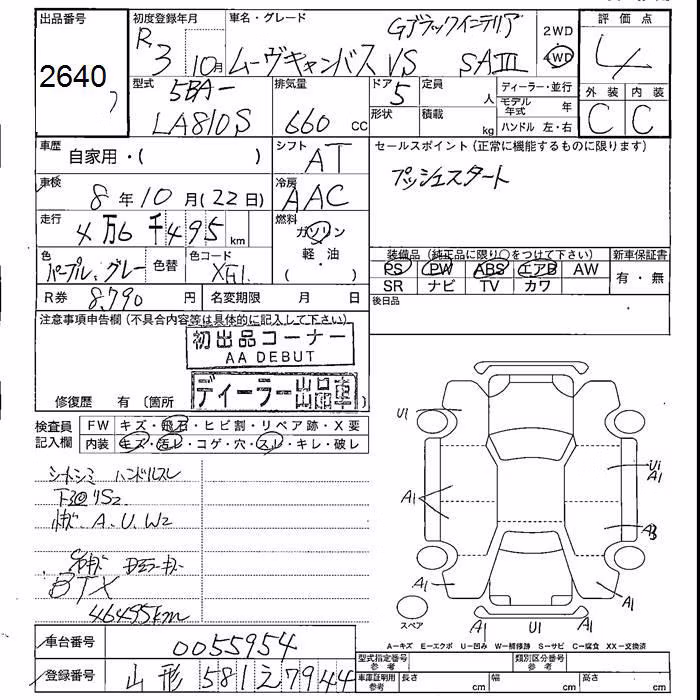 出品番号
2640
初度登録年月
R3 10月
車名・グレード
Gブラックインテリア
ムーヴキャンバス VS SAIII
2WD
4WD
評価点
4
外装 内装
C C
型式
5BA-
LA810S
排気量
660 cc
ドア
5
形状
定員
人
積載
kg
ディーラー・並行
モデル年式 年
ハンドル 左・右
車歴
自家用・( )
シフト
AT
セールスポイント(正常に機能するものに限ります)
プッシュスタート
車検
8年10月(22日)
冷房
AAC
走行
4万6千495 km
燃料
ガソリン
軽・油
( )
色
パープル、グレー
色替
色コード
XG1
装備品(純正品に限り○をつけて下さい)
新車保証書
PS PW ABS エアB AW
SR ナビ TV カワ
有・無
R券 8.790 円
名変期限 月 日
後日品
注意事項申告欄(不具合内容等は具体的に記入して下さい)
初出品コーナー
AA DEBUT
ディーラー出品車
修復歴 有(箇所 )
検査員記入欄
FW キズ・飛石・ヒビ割・リペア跡・X要
内装 キズ・汚レ・コゲ・穴・スレ・キレ・破レ
シートシミ ハンドルスレ
A.U.W2
BTX
46495km
U1
U1
A1
A1
A1
A1
A1
U1
A1
スペア
A—キズ E—エクボ U—凹み W—補修跡 S—サビ C—腐食 XX—交換済
車台番号 0055954
登録番号 山形 581 え 7944
型式指定番号 参考
類別区分番号 参考
車庫証明用 参考
長さ cm
幅 cm
高さ cm